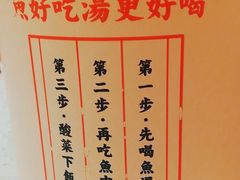 魚好吃湯更好喝
第一步·先喝魚湯
第二步·再吃魚肉
第三步·酸菜下飯